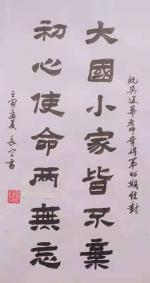 祝吳華老師奪得第期佳對
大國小家皆不棄
初心使命兩無忘
壬寅孟夏書